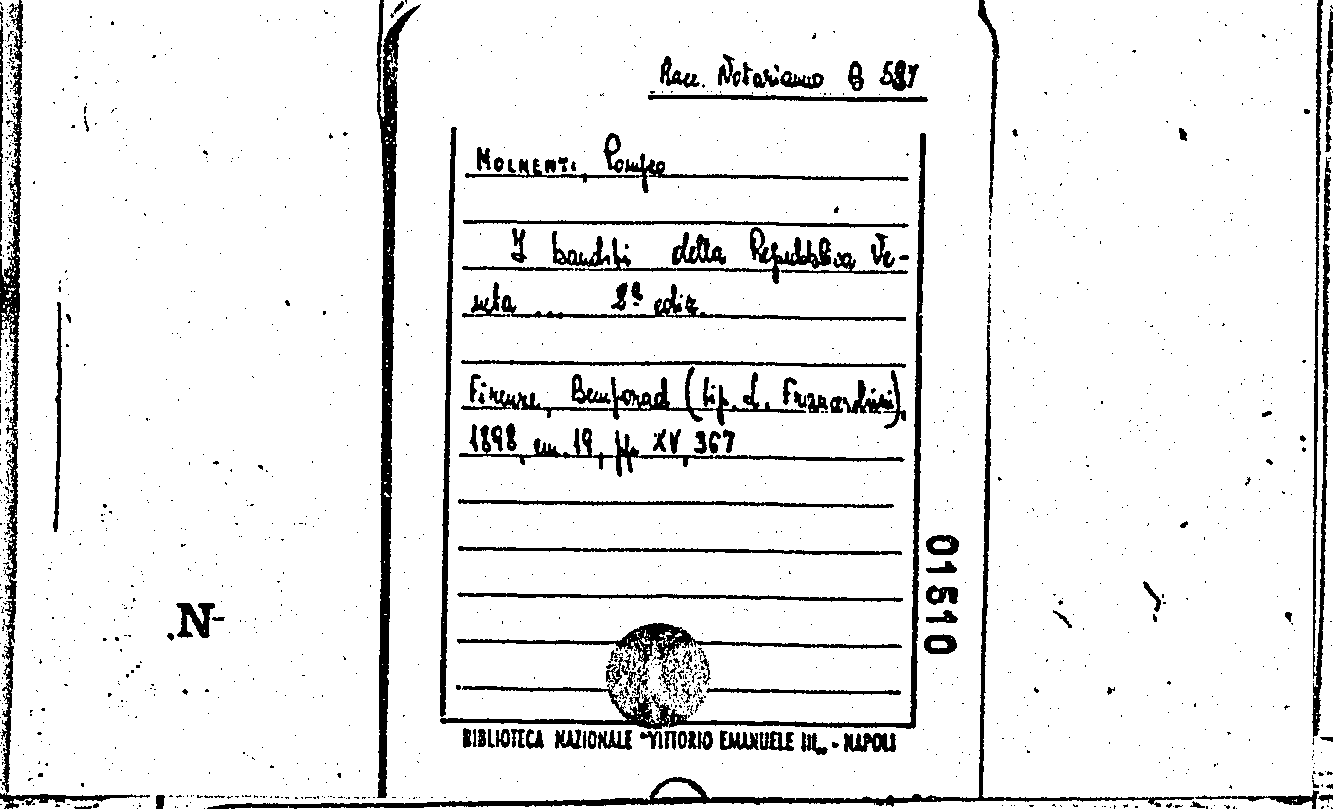 Racc. Notarianno B 587
MOLMENTI, Pompeo
I banditi della Repubblica Ve-
neta ... 2ª ediz.
Firenze, Bemporad (tip. L. Franceschini),
1898, cm. 19, pp. XV, 367
01510
.N-
BIBLIOTECA NAZIONALE "VITTORIO EMANUELE III„ - NAPOLI